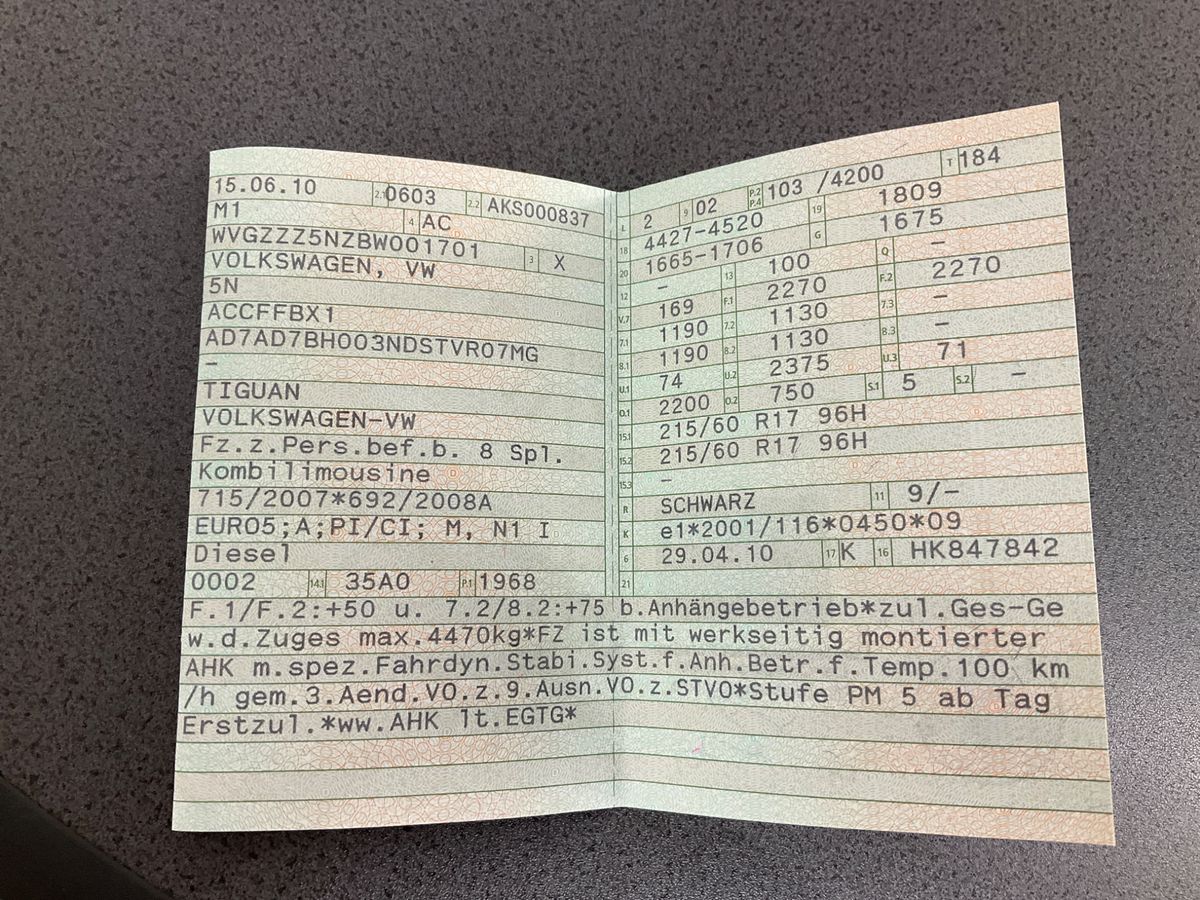 15.06.10 2.1 0603 2.2 AKS000837
M1 4 AC
WVGZZZ5NZBW001701 3 X
VOLKSWAGEN, VW
5N
ACCFFBX1
AD7AD7BH003NDSTVR07MG
–
TIGUAN
VOLKSWAGEN-VW
Fz.z.Pers.bef.b. 8 Spl.
Kombilimousine
715/2007*692/2008A
EURO5;A;PI/CI; M, N1 I
Diesel
0002 14.1 35A0 P.1 1968
L 2 9 02 P.2 P.4 103 /4200 T 184
18 4427-4520 19 1809
20 1665-1706 G 1675
12 – 13 100 Q –
V.7 169 F.1 2270 F.2 2270
7.1 1190 7.2 1130 7.3 –
8.1 1190 8.2 1130 8.3 –
U.1 74 U.2 2375 U.3 71
O.1 2200 O.2 750 S.1 5 S.2 –
15.1 215/60 R17 96H
15.2 215/60 R17 96H
15.3 –
R SCHWARZ 11 9/–
K e1*2001/116*0450*09
6 29.04.10 17 K 16 HK847842
21
F.1/F.2:+50 u. 7.2/8.2:+75 b.Anhängebetrieb*zul.Ges-Ge
w.d.Zuges max.4470kg*FZ ist mit werkseitig montierter
AHK m.spez.Fahrdyn.Stabi.Syst.f.Anh.Betr.f.Temp.100 km
/h gem.3.Aend.VO.z.9.Ausn.VO.z.STVO*Stufe PM 5 ab Tag
Erstzul.*ww.AHK lt.EGTG*